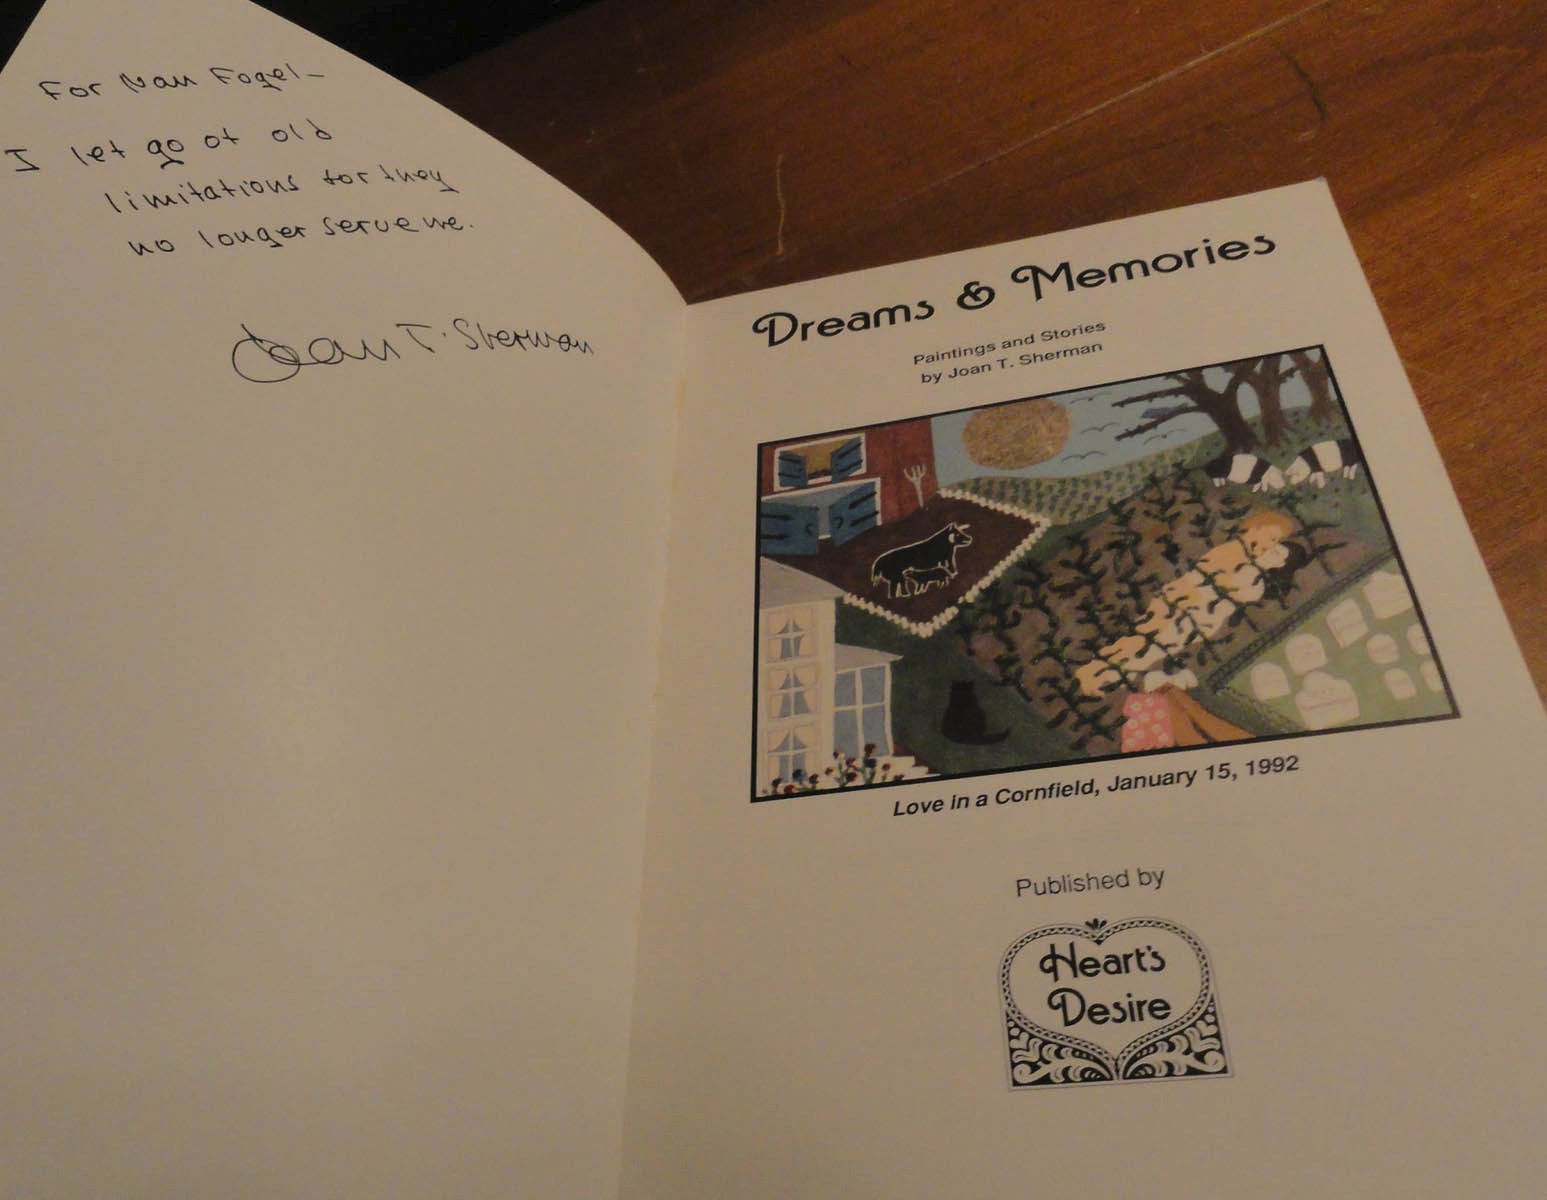 For Nan Fogel –
I let go of old
limitations for they
no longer serve me.
Joan T. Sherman
Dreams & Memories
Paintings and Stories
by Joan T. Sherman
Love in a Cornfield, January 15, 1992
Published by
Heart's
Desire